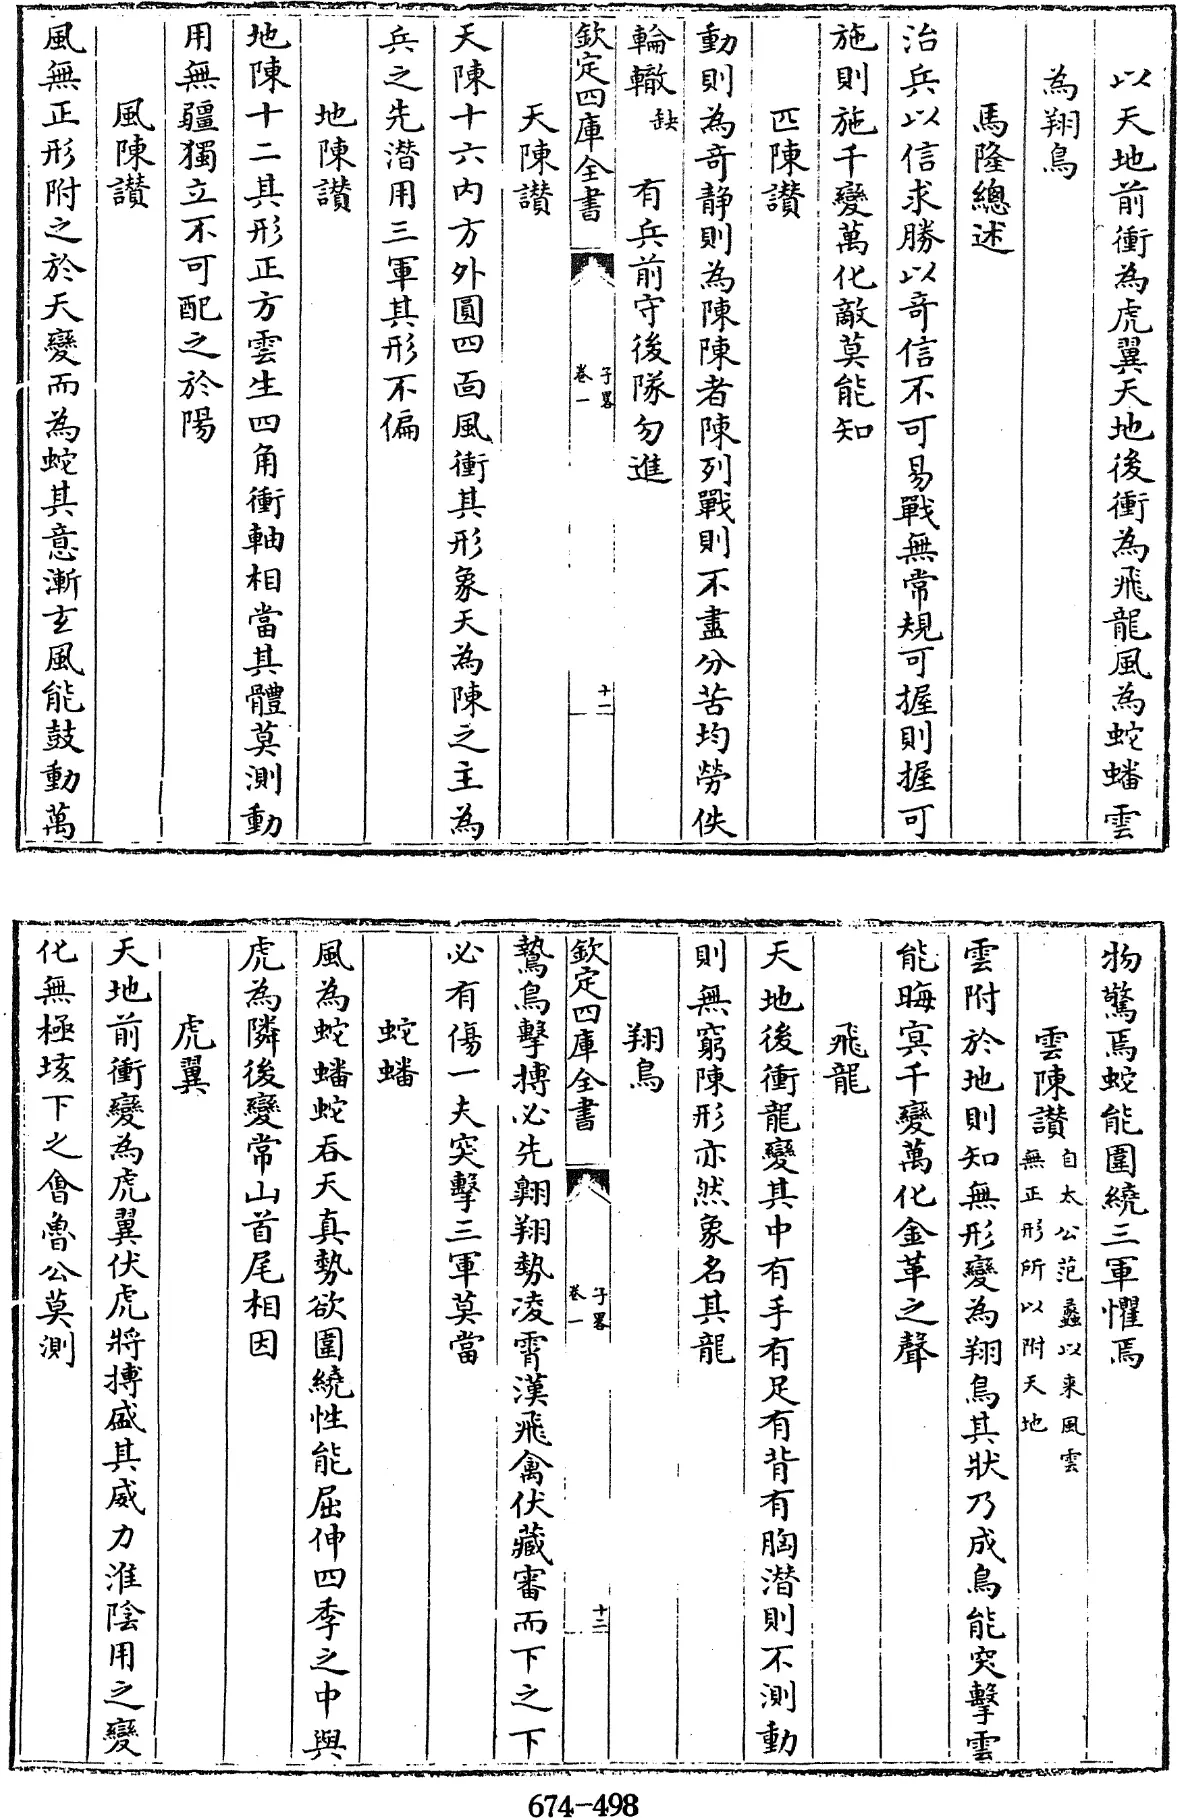 以天地前衝為虎翼天地後衝為飛龍風為蛇蟠雲
為翔鳥
馬隆總述
治兵以信求勝以奇信不可易戰無常規可握則握可
施則施千變萬化敵莫能知
匹陳讃
動則為奇静則為陳陳者陳列戰則不盡分苦均勞佚
輪轍缺有兵前守後隊勿進
欽定四庫全書
子畧
卷一
十一
天陳讃
天陳十六内方外圓四面風衝其形象天為陳之主為
兵之先潛用三軍其形不偏
地陳讃
地陳十二其形正方雲生四角衝軸相當其體莫測動
用無疆獨立不可配之於陽
風陳讃
風無正形附之於天變而為蛇其意漸玄風能鼓動萬
物驚焉蛇能圍繞三軍懼焉
雲陳讃
自太公范蠡以来風雲
無正形所以附天地
雲附於地則知無形變為翔鳥其狀乃成鳥能突擊雲
能晦冥千變萬化金革之聲
飛龍
天地後衝龍變其中有手有足有背有胸潛則不測動
則無窮陳形亦然象名其龍
翔鳥
欽定四庫全書
子畧
卷一
十二
鷙鳥擊搏必先翺翔勢凌霄漢飛禽伏藏審而下之下
必有傷一夫突擊三軍莫當
蛇蟠
風為蛇蟠蛇吞天真勢欲圍繞性能屈伸四季之中與
虎為隣後變常山首尾相因
虎翼
天地前衝變為虎翼伏虎將搏盛其威力淮陰用之變
化無極垓下之會魯公莫測
674-498